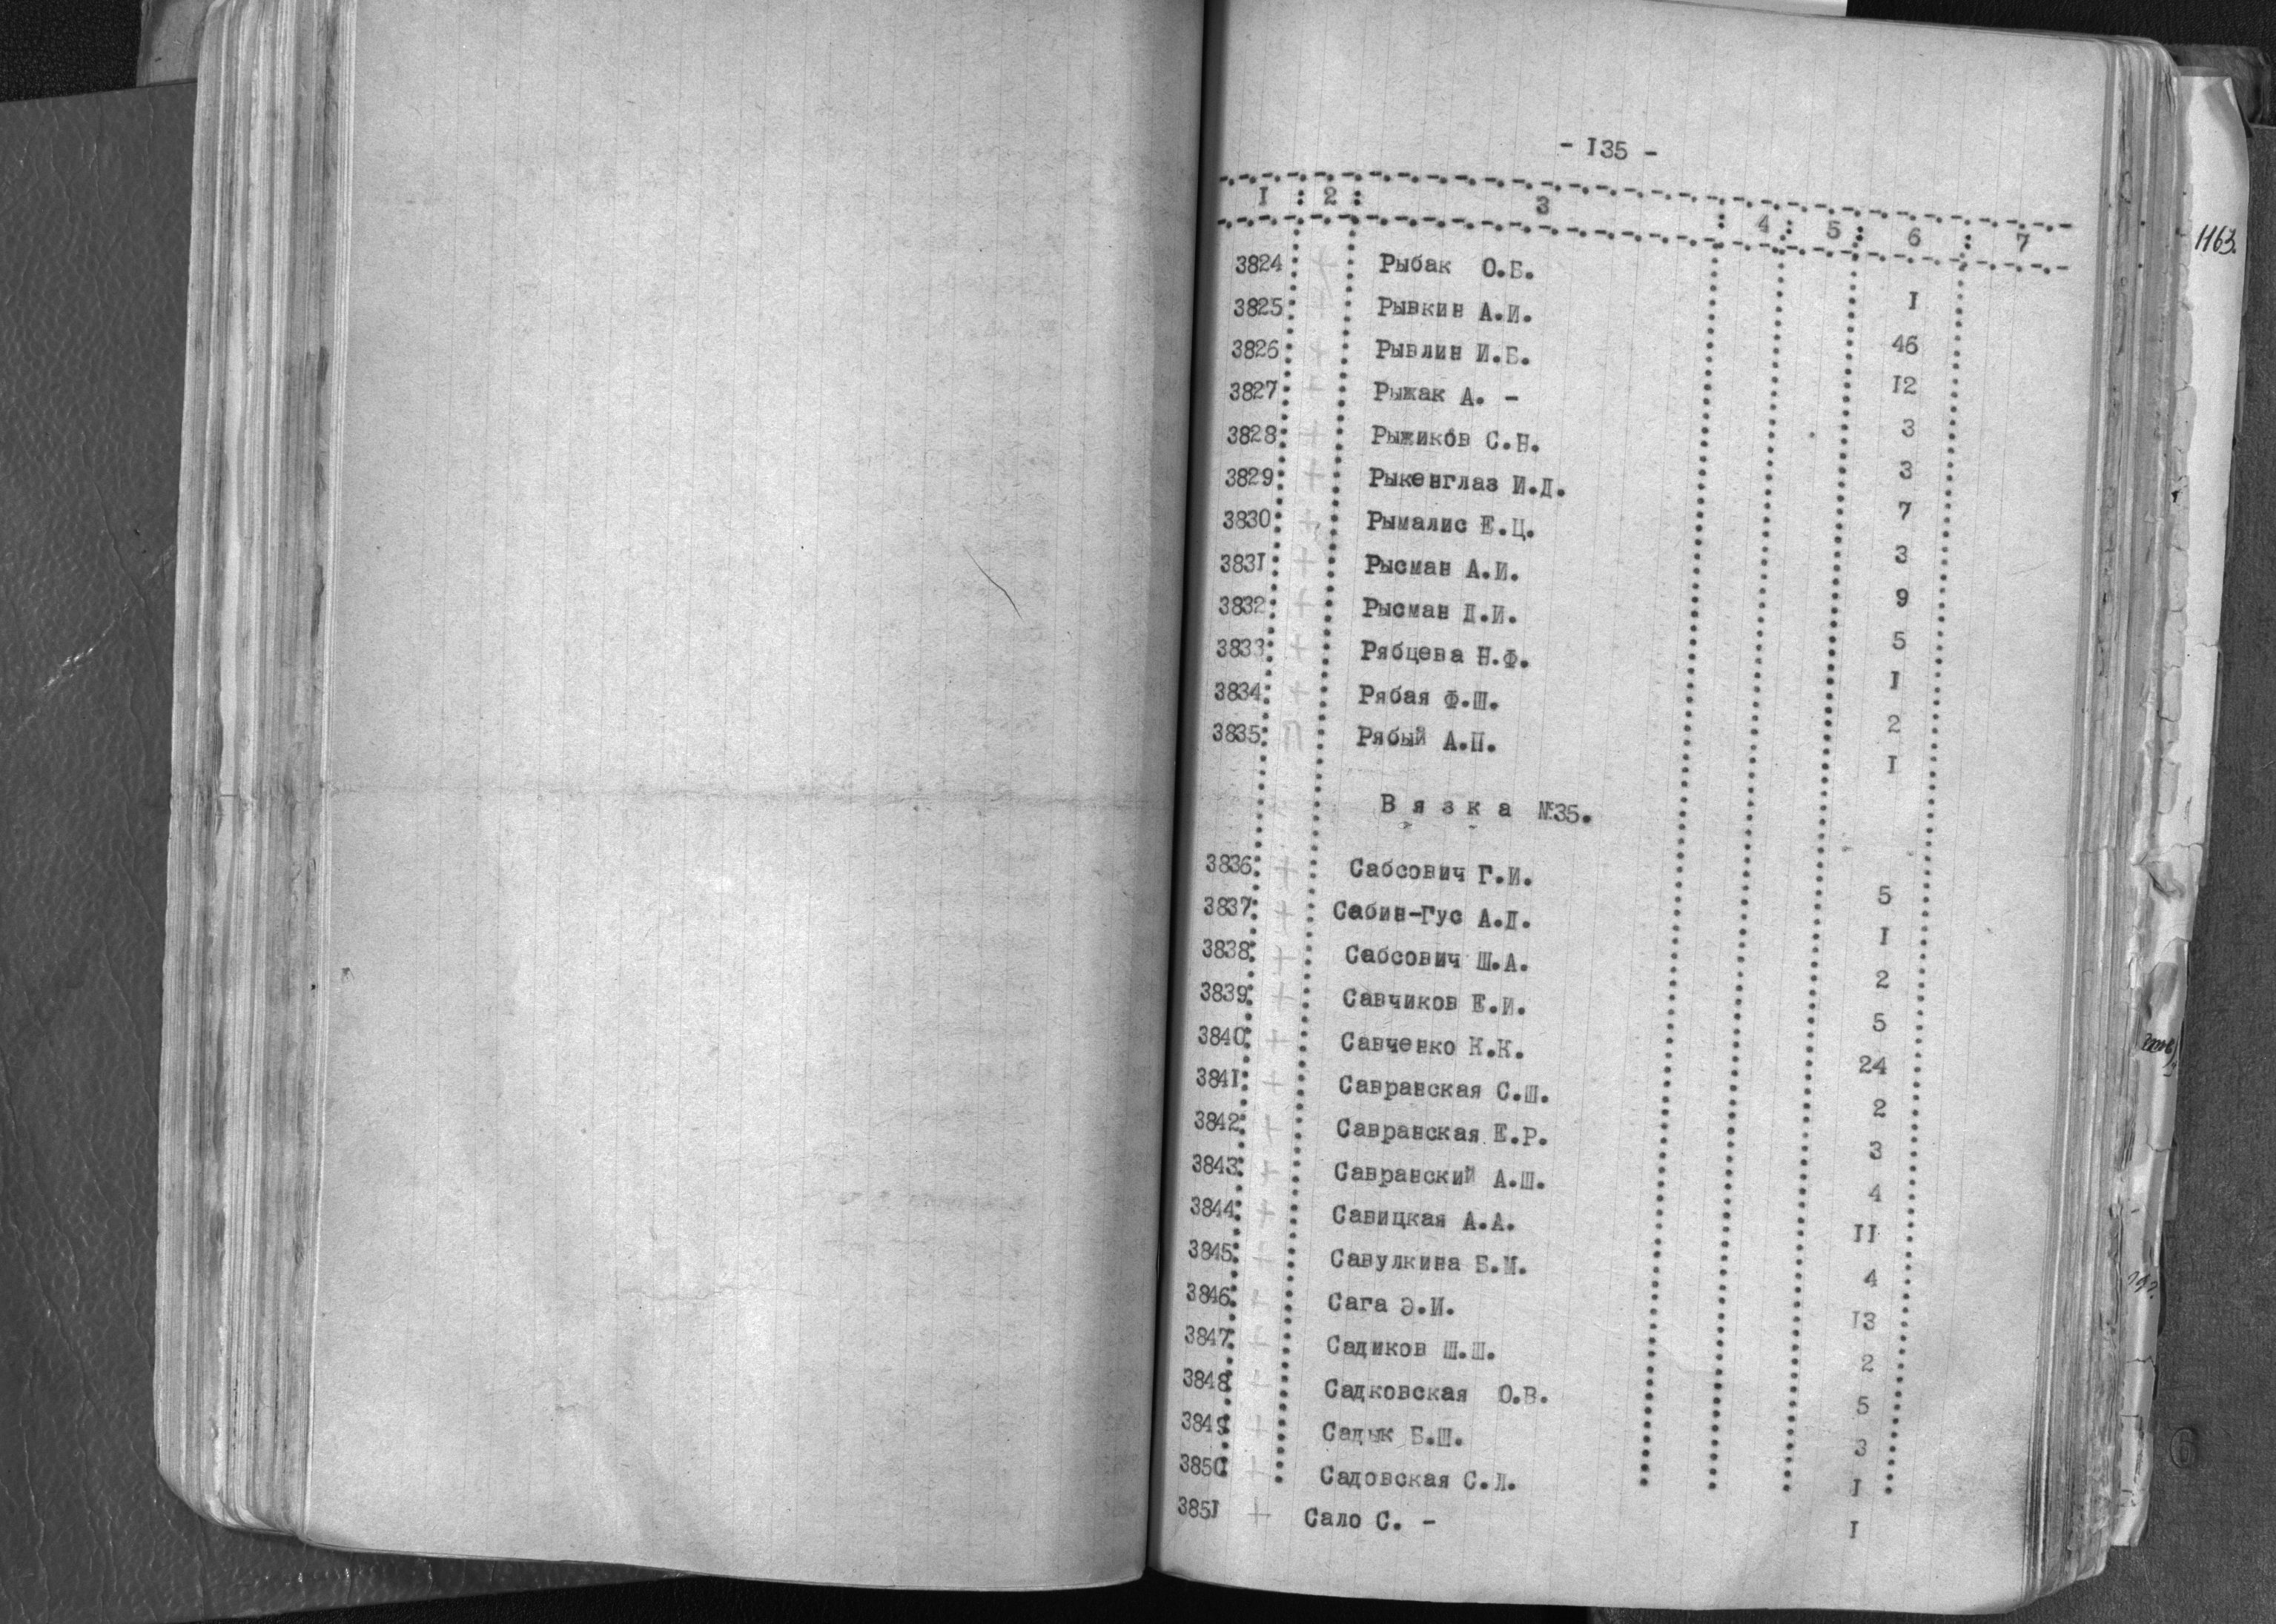 - I35 -
I : 2 : 3 : 4 : 5 : 6 : 7
3824 + Рыбак О.Б. I
3825 + Рывкин А.И. 46
3826 + Рывлин И.Б. I2
3827 + Рыжак А. - 3
3828 + Рыжиков С.Н. 3
3829 + Рыкенглаз И.Д. 7
3830 + Рымалис Е.Ц. 3
383I + Рысман А.И. 9
3832 + Рысман Д.И. 5
3833 + Рябцева Н.Ф. I
3834 + Рябая Ф.Ш. 2
3835 П Рябый А.П. I
Вязка №35.
3836 + Сабсович Г.И. 5
3837 + Сабин-Гус А.Д. I
3838 + Сабсович Ш.А. 2
3839 + Савчиков Е.И. 5
3840 + Савченко К.К. 24
384I + Савранская С.Ш. 2
3842 + Савранская Е.Р. 3
3843 + Савранский А.Ш. 4
3844 + Савицкая А.А. II
3845 + Савулкина Б.М. 4
3846 + Сага Э.И. I3
3847 + Садиков Ш.Ш. 2
3848 + Садковская О.В. 5
3849 + Садык Б.Ш. 3
3850 + Садовская С.Л. I
385I + Сало С. - I
1163.